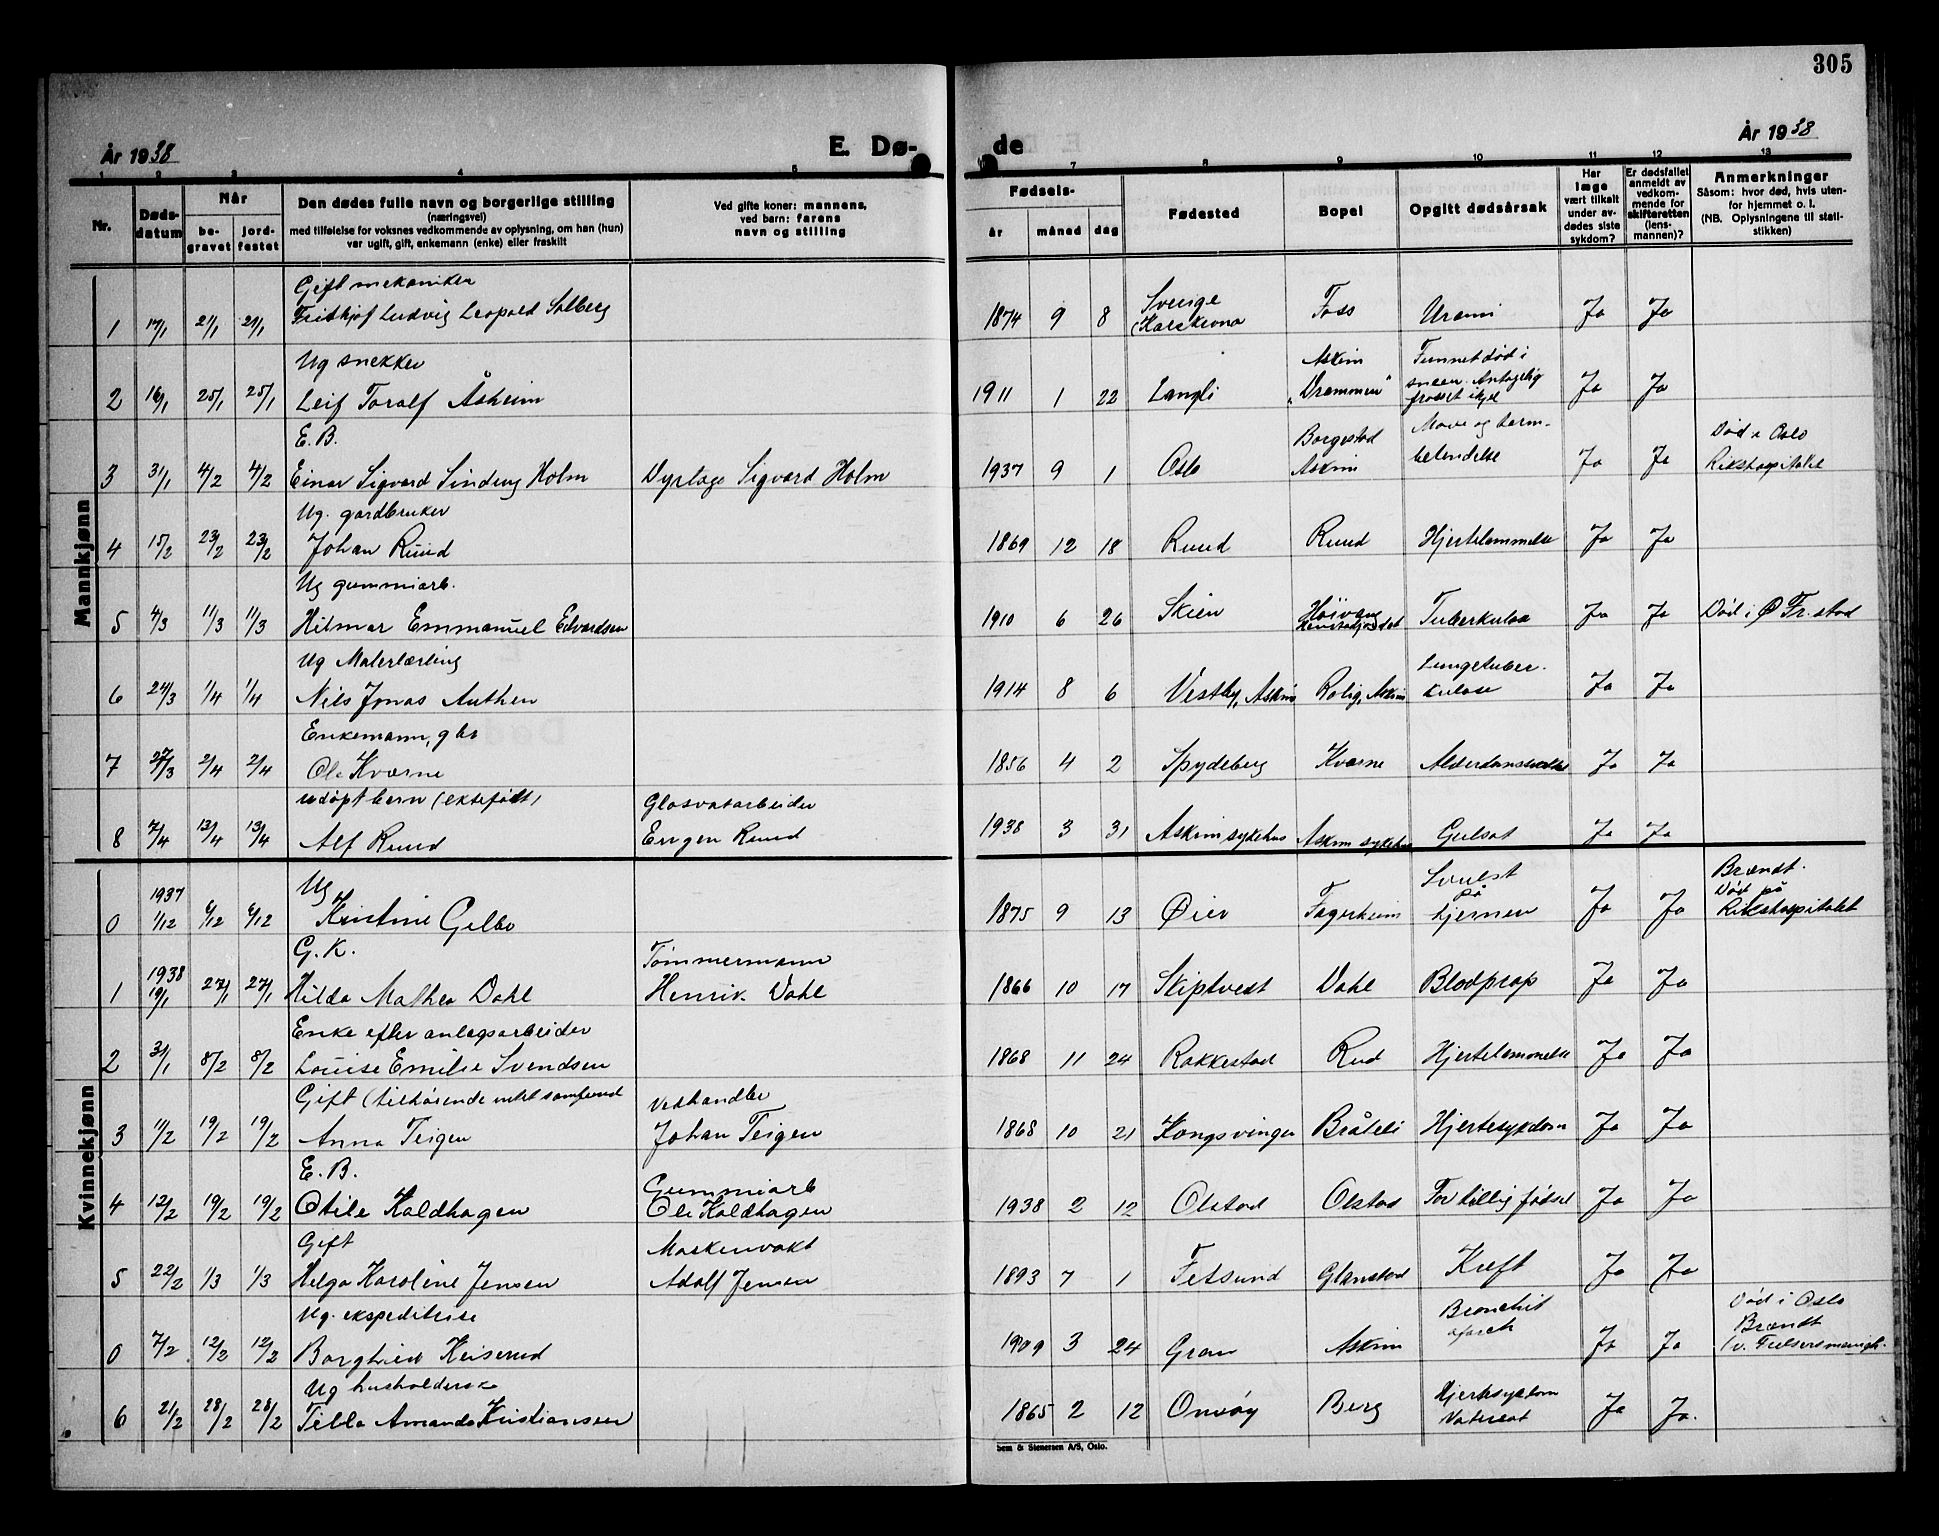 305
År 1938
E. Dø-
de
År 1938
1 2 3 4 5 7 8 9 10 11 12 13
Nr.
Døds-
datum
Når
be-
gravet
jord-
festet
Den dødes fulle navn og borgerlige stilling
(næringsvei)
med tilføielse for voksnes vedkommende av oplysning, om han (hun)
var ugift, gift, enkemann (enke) eller fraskilt
Ved gifte koner: mannens,
ved barn: farens
navn og stilling
Fødsels-
år måned dag
Fødested
Bopel
Opgitt dødsårsak
Har
læge
vært tilkalt
under av-
dødes siste
sykdom?
Er dødsfallet
anmeldt av
vedkom-
mende for
skifteretten
(lens-
mannen)?
Anmerkninger
Såsom: hvor død, hvis uten-
for hjemmet o. l.
(NB. Oplysningene til stati-
stikken)
Mannkjønn
Gift mekaniker
1 17/1 21/1 21/1 Fridthjof Ludvig Leopold Solberg 1874 9 8 Sverige (Karskrona Foss Uremi Ja Ja
Ug snekker
2 16/1 25/1 25/1 Leif Toralf Åsheim 1911 1 22 Langli Askim "Drammen" Funnet død i sneen. Antagelig frosset ihjel Ja Ja
E. B.
3 31/1 4/2 4/2 Einar Sigvard Sinding Holm Dyrlæge Sigvard Holm 1937 9 1 Oslo Borgestad Askim Mave og tarm- betendelse Ja Ja Død i Oslo Rikshospitalet
Ug. gardbruker
4 15/2 23/2 23/2 Johan Ruud 1869 12 18 Ruud Ruud Hjertelammelse Ja Ja
Ug gummiarb.
5 4/3 11/3 11/3 Hilmar Emmanuel Edvardsen 1910 6 26 Skien Høivang Tuberkulose Ja Ja Død i Ø Fr.stad
Ug Malerlærling
6 24/3 1/4 1/4 Nils Jonas Authen 1914 8 6 Vestby, Askim Rolig, Askim Lungetuber- kulose Ja Ja
Enkemann, gbr
7 27/3 2/4 2/4 Ole Kværne 1856 4 2 Spydeberg Kværne Alderdomssvakhet Ja Ja
udøpt barn (ektefødt)
8 7/4 13/4 13/4 Alf Ruud Glasvatarbeider Eugen Ruud 1938 3 31 Askim sykehus Askim sykehus Gulsot Ja Ja
Kvinnekjønn
Ug
0 1937 1/12 6/12 6/12 Kristine Gelbo 1875 9 13 Øier Fagerheim Svulst på hjernen Ja Ja Brændt. Død på Rikshospitalet
G. K.
1 1938 19/1 27/1 27/1 Hilda Mathea Dahl Tømmermann Henrik Dahl 1866 10 17 Skiptvedt Dahl Blodprop Ja Ja
Enke efter anlegsarbeider
2 31/1 8/2 8/2 Louise Emilie Svendsen 1868 11 24 Rakkestad Rud Hjertelammelse Ja Ja
Gift (tilhørende intet samfund
3 11/2 19/2 19/2 Anna Teigen Vedhandler Johan Teigen 1868 10 21 Kongsvinger Bråteli Hjertesykdom Ja Ja
E. B.
4 12/2 19/2 19/2 Otile Kaldhagen Gummiarb Ole Kaldhagen 1938 2 12 Olstad Olstad For tidlig fødsel Ja Ja
Gift
5 22/2 1/3 1/3 Helga Karoline Jensen Maskenvakt Adolf Jensen 1893 7 1 Fetsund Glenstad Kreft Ja Ja
Ug. ekspeditrise
0 7/2 12/2 12/2 Borghild Keiserud 1909 3 24 Gran Askim Bronchit Ja Ja Død i Oslo Brændt
Ug husholderske
6 21/2 28/2 28/2 Tilla Amanda Kristiansen 1865 2 12 Onsøy Berg Hjertesykdom Vatersot Ja Ja.
Sem & Stenersen A/S, Oslo.